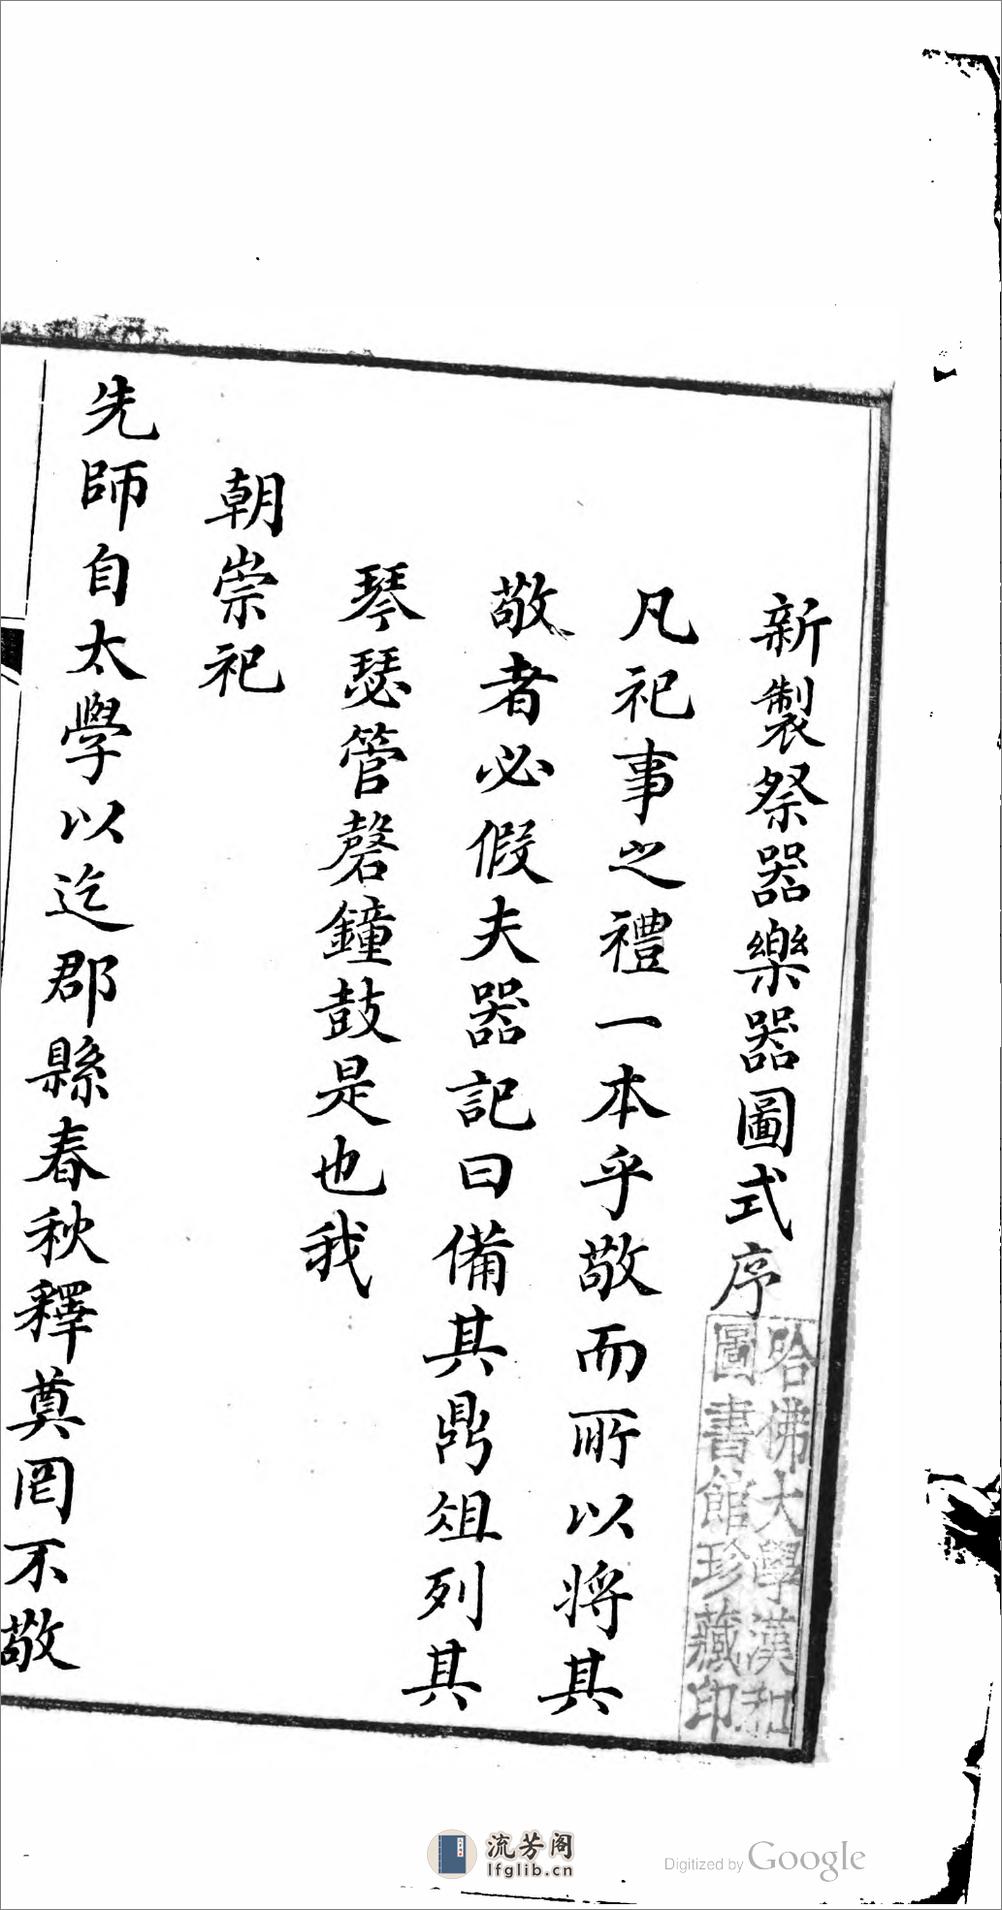 新製祭器樂器圖式序
凡祀事之禮一本乎敬而所以將其
敬者必假夫器記曰備其鼎俎列其
琴瑟管磬鐘鼓是也我
朝崇祀
先師自太學以迄郡縣春秋釋奠罔不敬
哈佛大學漢和
圖書館珍藏印
流芳阁
lfglib.cn
Digitized by Google